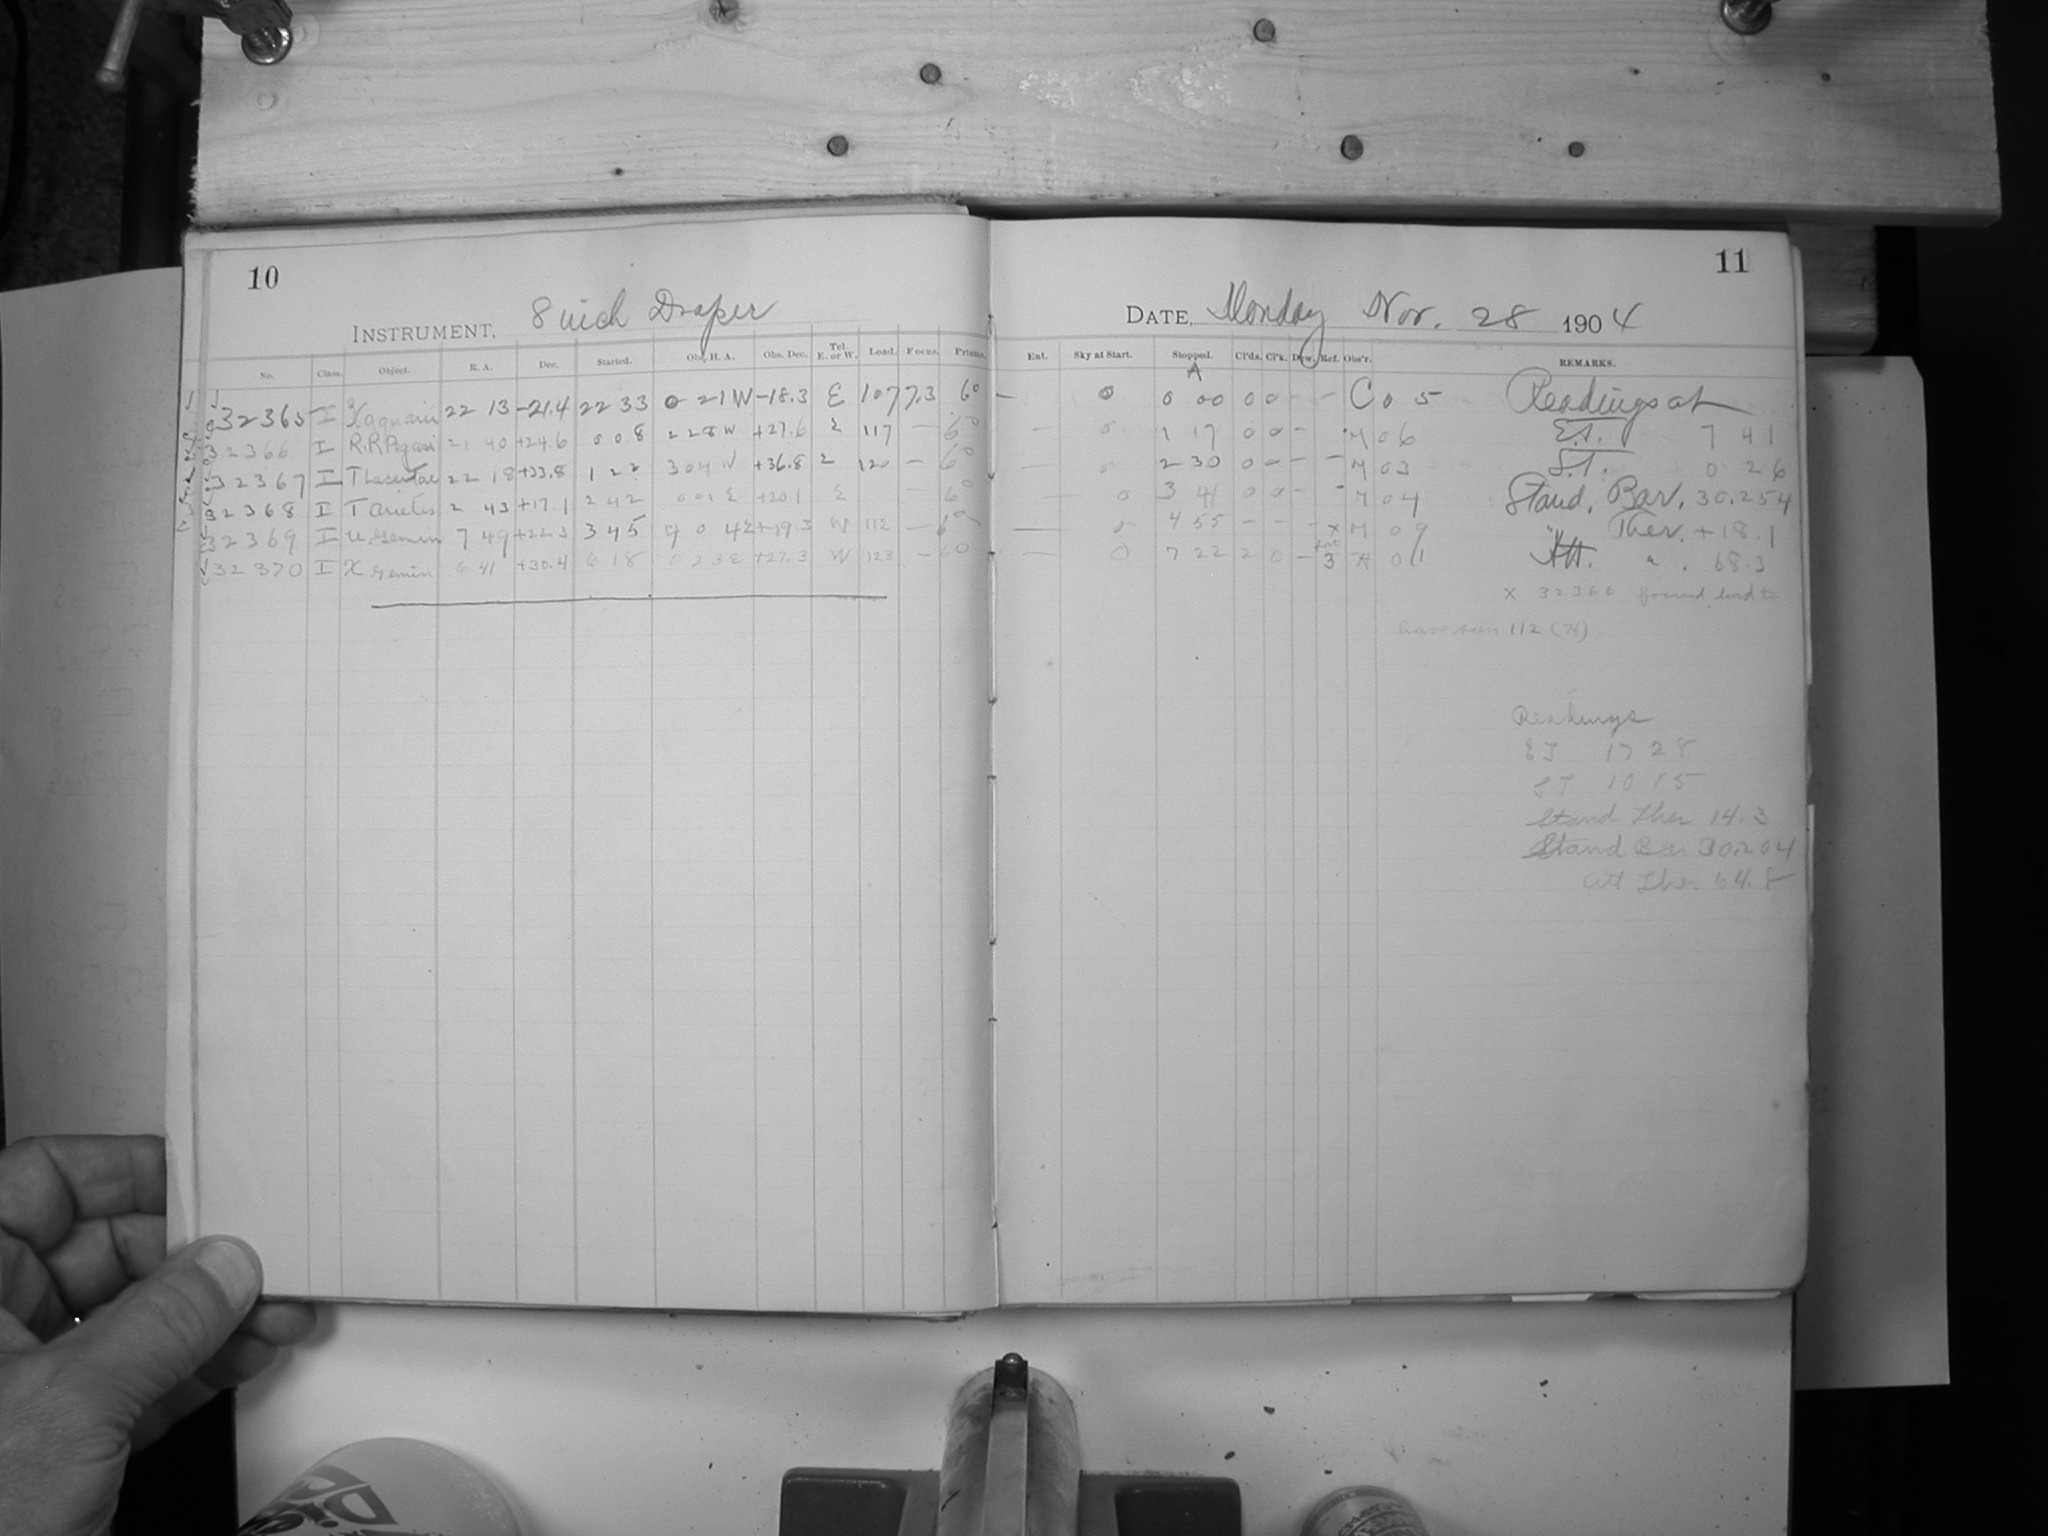 10
INSTRUMENT, 8 inch Draper
No. Class. Object. R. A. Dec. Started. Obs. H. A. Obs. Dec. Tel. E. or W. Lead. Focus. Prisms.
32365 I X aquarii 22 13 -21.4 22 33 0 21 W -18.3 E 107 7.3 6°
32366 I R.R Pegasi 21 40 +24.6 0 08 2 28 W +27.6 E 117 — 6°
32367 I T Lacertae 22 18 +33.8 1 22 3 04 W +36.8 E 120 — 6°
32368 I T arietis 2 43 +17.1 2 42 0 01 E +20.1 E 6°
32369 I U. Gemin 7 49 +22.3 3 45 4 04 E +19.3 W 112 — 6°
32370 I X Gemin 6 41 +30.4 6 18 0 23 E +27.3 W 123 — 6°
11
DATE, Monday Nov. 28 1904
Ent. Sky at Start. Stopped. Cl'ds. Cl'k. Dew. Ref. Obs'r. REMARKS.
A
— 0 0 00 0 0 - - C 0 5 Readings at
— 0 1 17 0 0 - H 0 6 E.T. 7 41
— 0 2 30 0 - - - H 0 3 S.T. 0 26
— 0 3 41 0 0 - - H 0 4 Stand. Bar. 30.254
— 0 4 55 - - - x H 0 9 " Ther. +18.1
— 0 7 22 2 0 - 3 H 0 1 Att. " . 68.3
x 32366 found lead to
have been 112 (H)
Readings
E T 17 28
S T 10 15
Stand Ther 14.3
Stand Bar 30.204
Att Ther 64.8